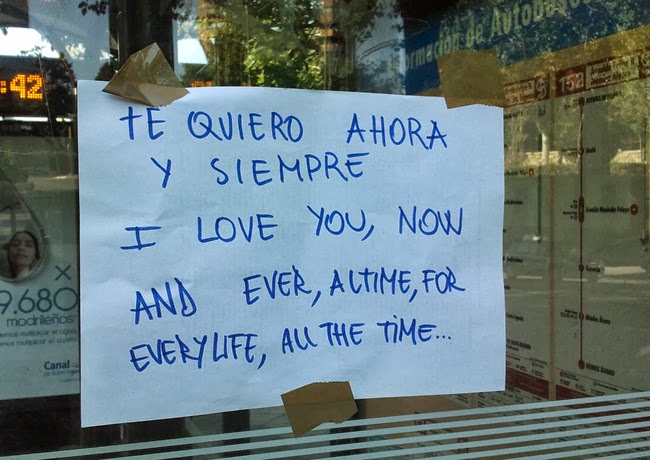 :42
formación de Autobuses
TE QUIERO AHORA
Y SIEMPRE
I LOVE YOU, NOW
AND EVER, ALTIME, FOR
EVERY LIFE, ALL THE TIME...
152
×
9.680
madrileños
Canal